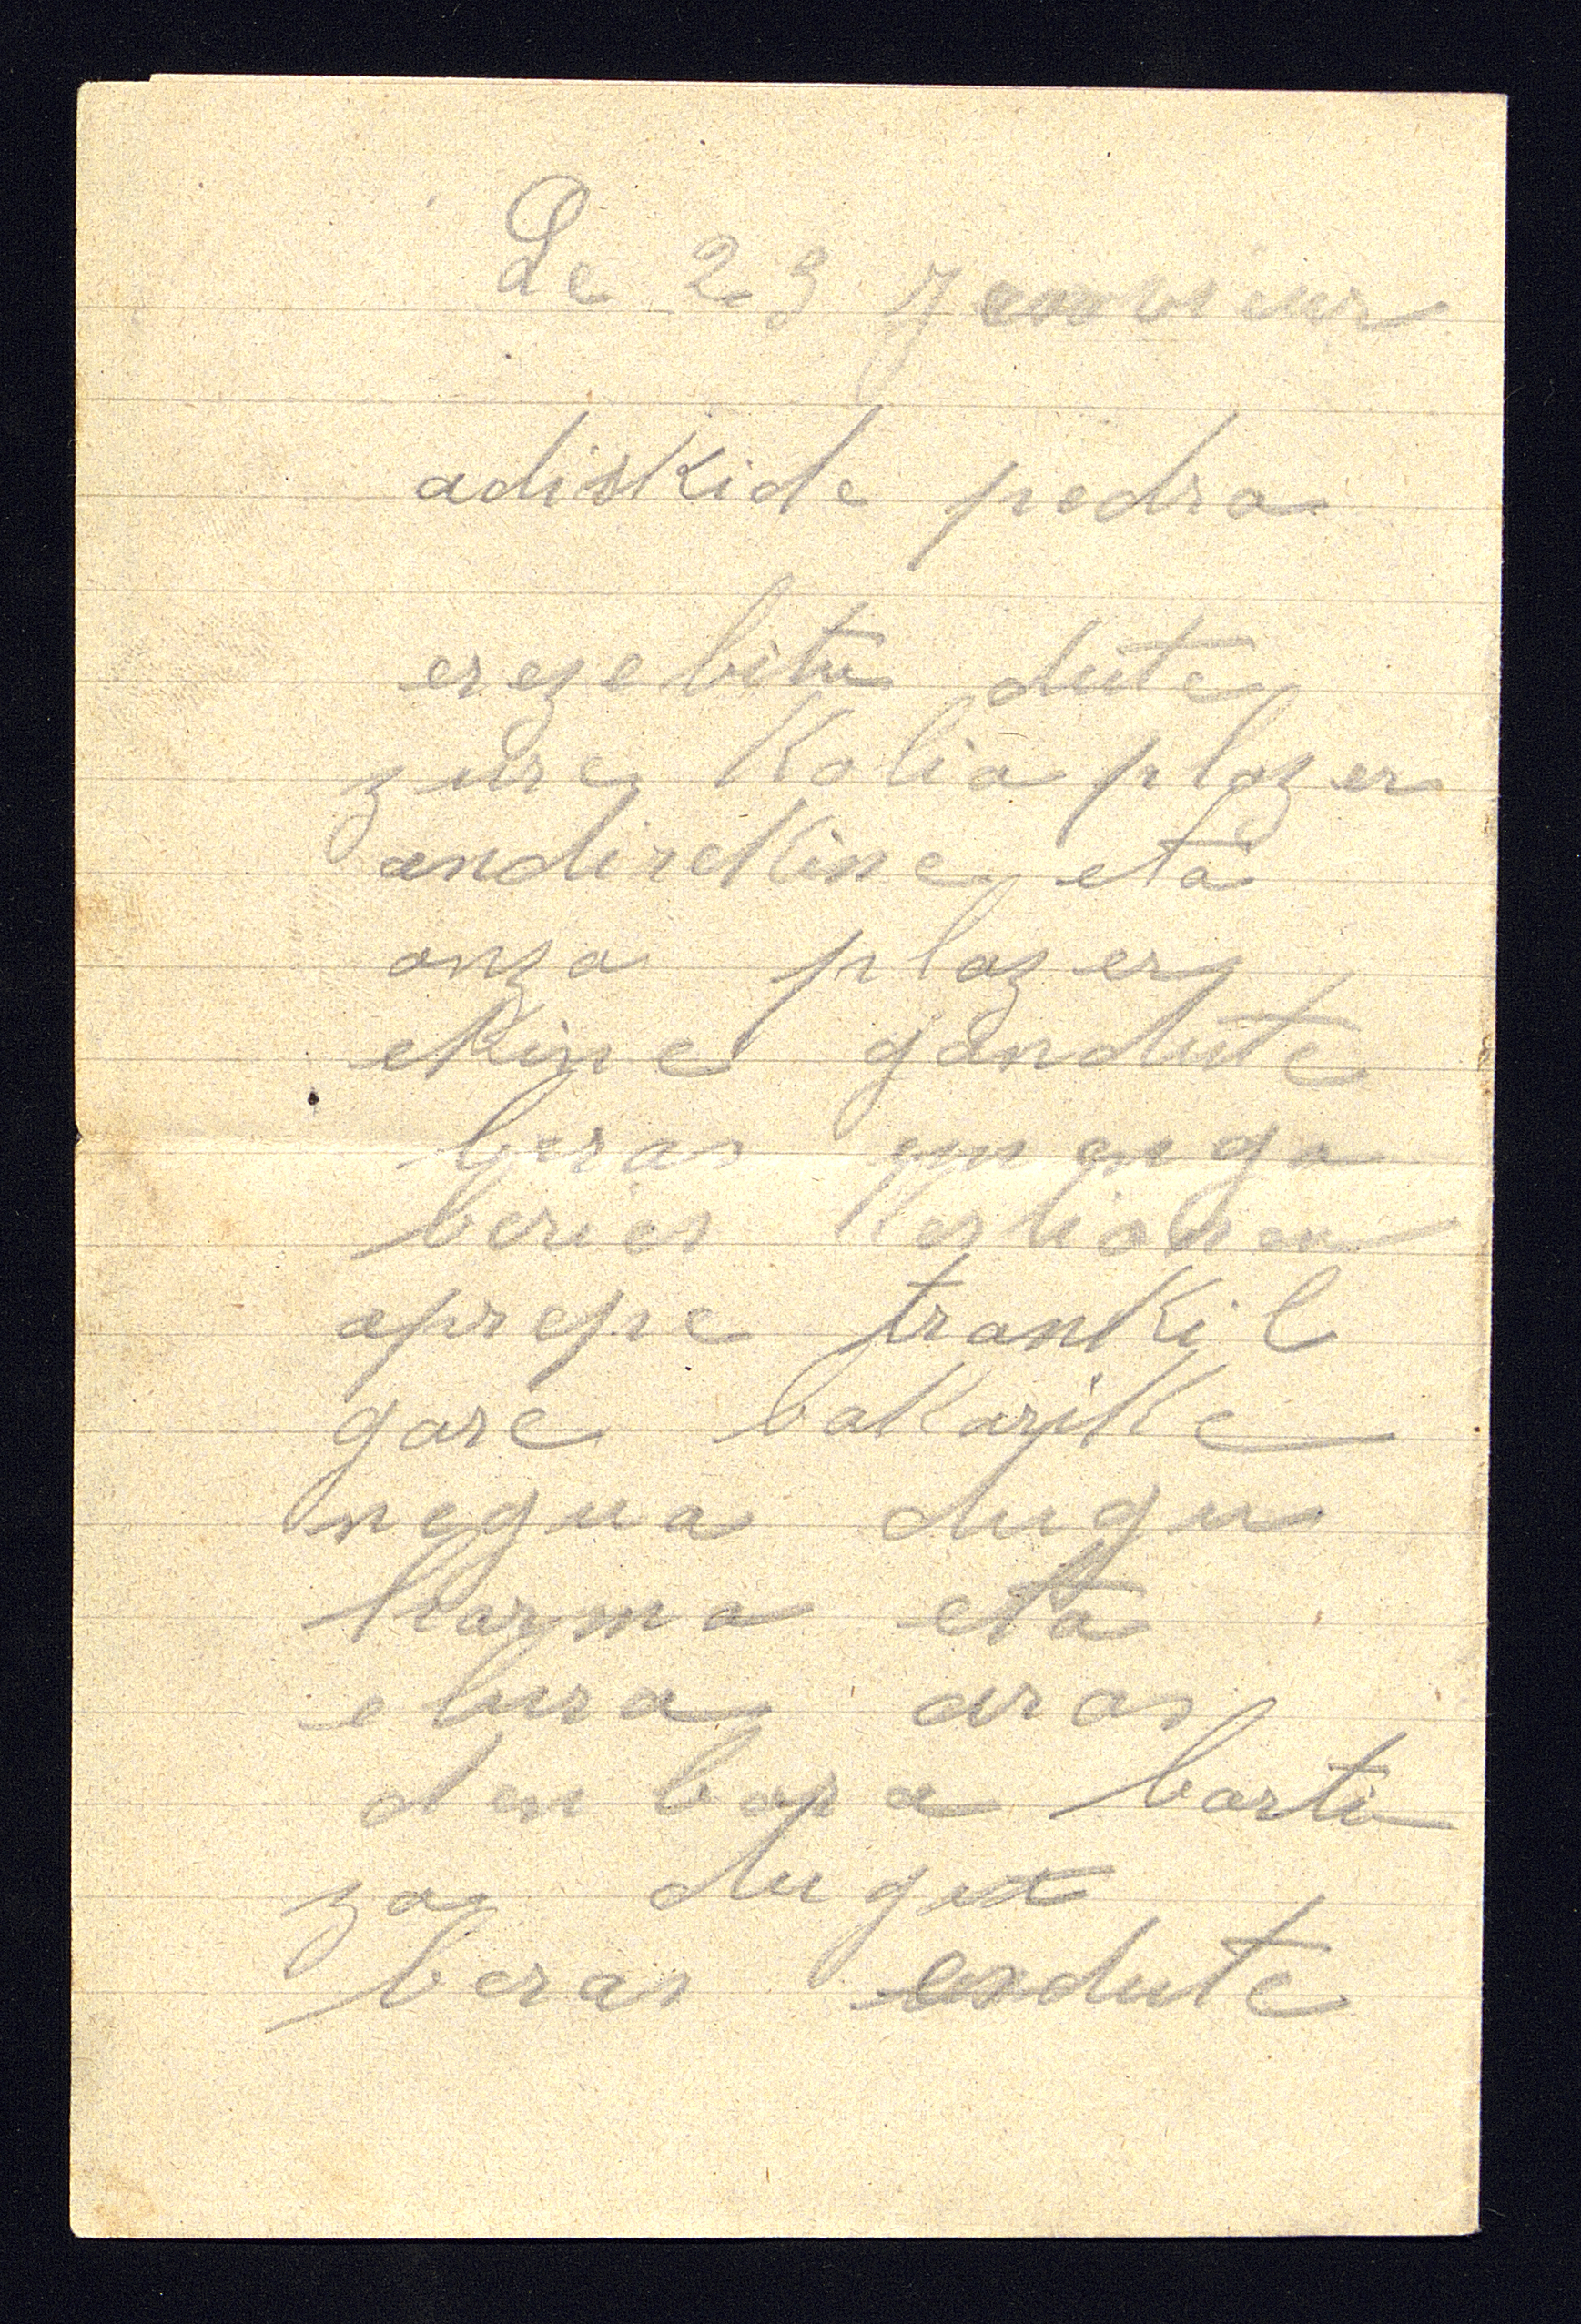 Le 23 Janvier
adiskide pedra
erezebitu dute
zure Kolia plazer
andirekine eta
onza plazer
ekine gandute
beras emengo
beries Kestionea
aprepe trankil
gare bakarike
negua dugu
harma eta
elura aras
denbora barti
za dugu
beras esdute